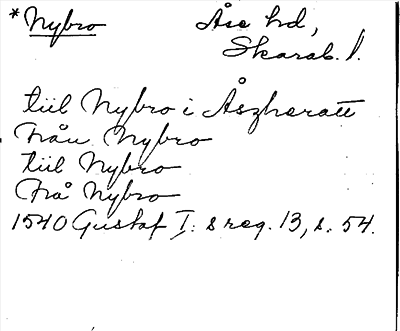 *Nybro Åse hd,
Skarab. l.
tiil Nybro i Åszheratt
Från Nybro
tiil Nybro
Frå Nybro
1540 Gustaf I: s reg. 13, s. 54.